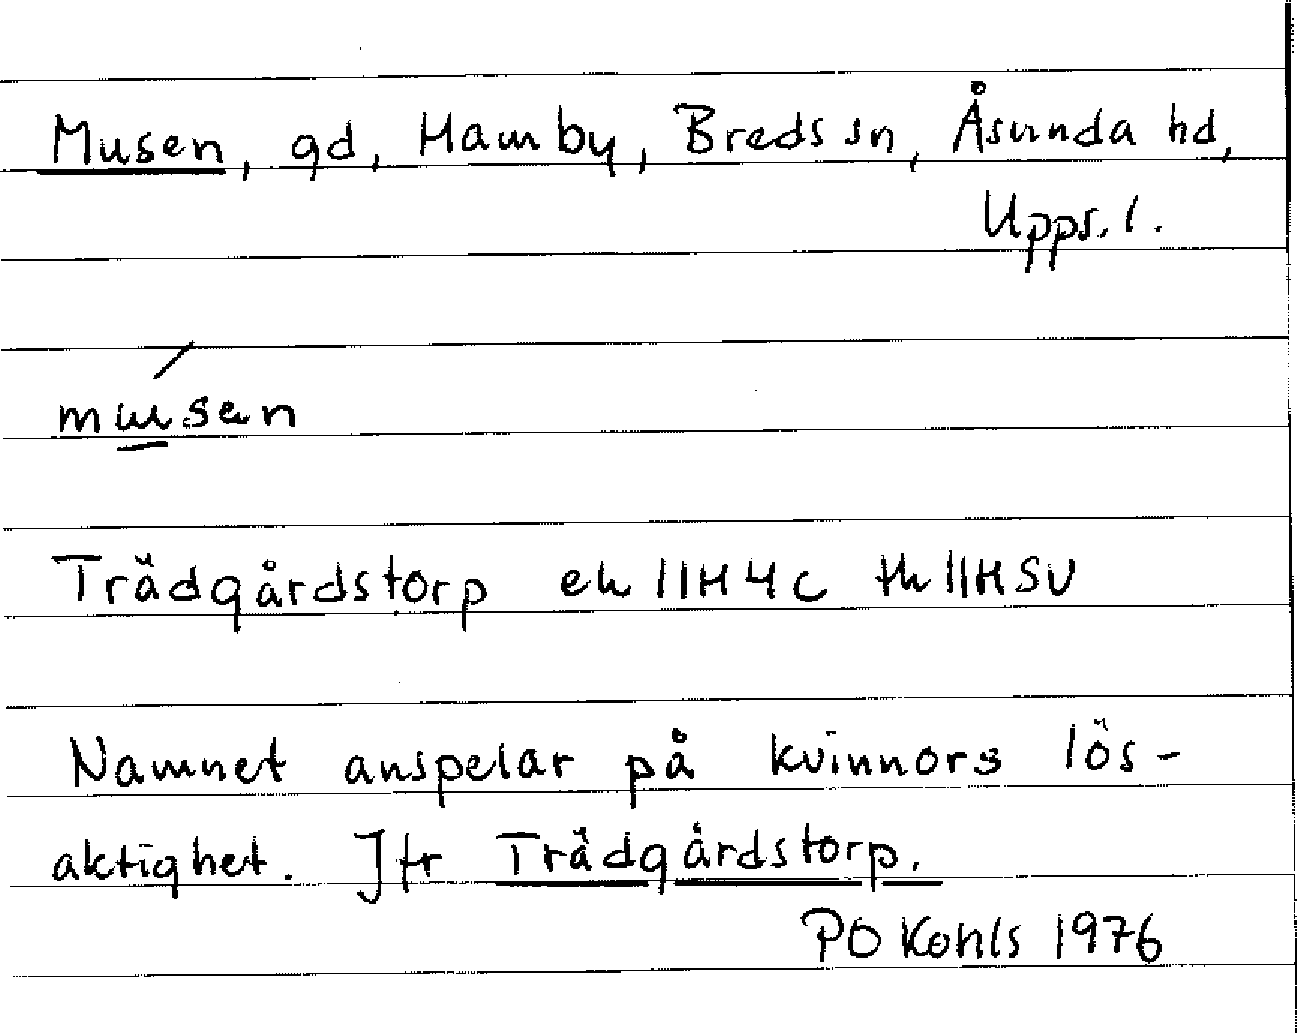 Musen, gd, Hamby, Breds sn, Åsunda hd,
Upps. l.
músen
Trädgårdstorp ek 11H4c tk 11HSV
Namnet anspelar på kvinnors lös-
aktighet. Jfr Trädgårdstorp.
PO Kohls 1976